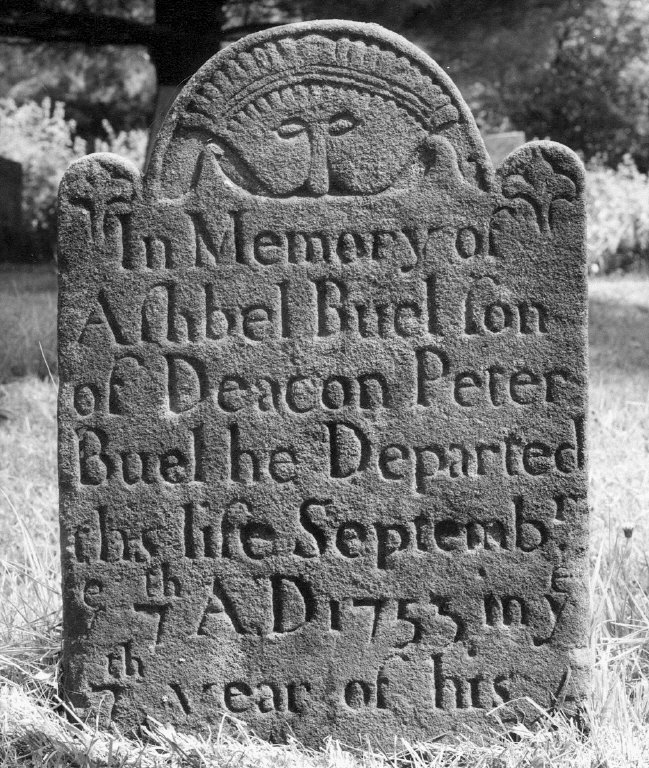 In Memory of
Aſhbel Buel ſon
of Deacon Peter
Buel he Departed
this life Septembʳ
ᵉ 7ᵗʰ A.D 1753 in yᵉ
7ᵗʰ year of his